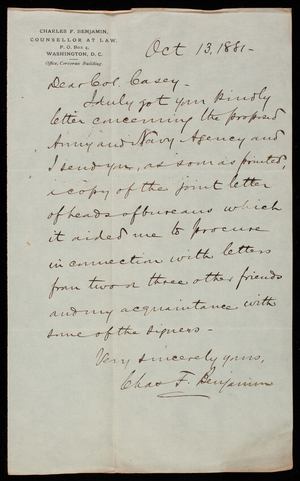 CHARLES F. BENJAMIN,
COUNSELLOR AT LAW,
P. O. Box 4,
WASHINGTON, D. C.
Office, Corcoran Building.
Oct 13, 1881-
Dear Col. Casey-
I duly got your kindly
letter concerning the proposed
Army and Navy Agency and
I send you, as soon as printed,
a copy of the joint letter
of heads of bureaus which
it aided me to procure
in connection with letters
from two or three other friends
and my acquaintance with
some of the signers-
Very sincerely yours,
Chas F. Benjamin